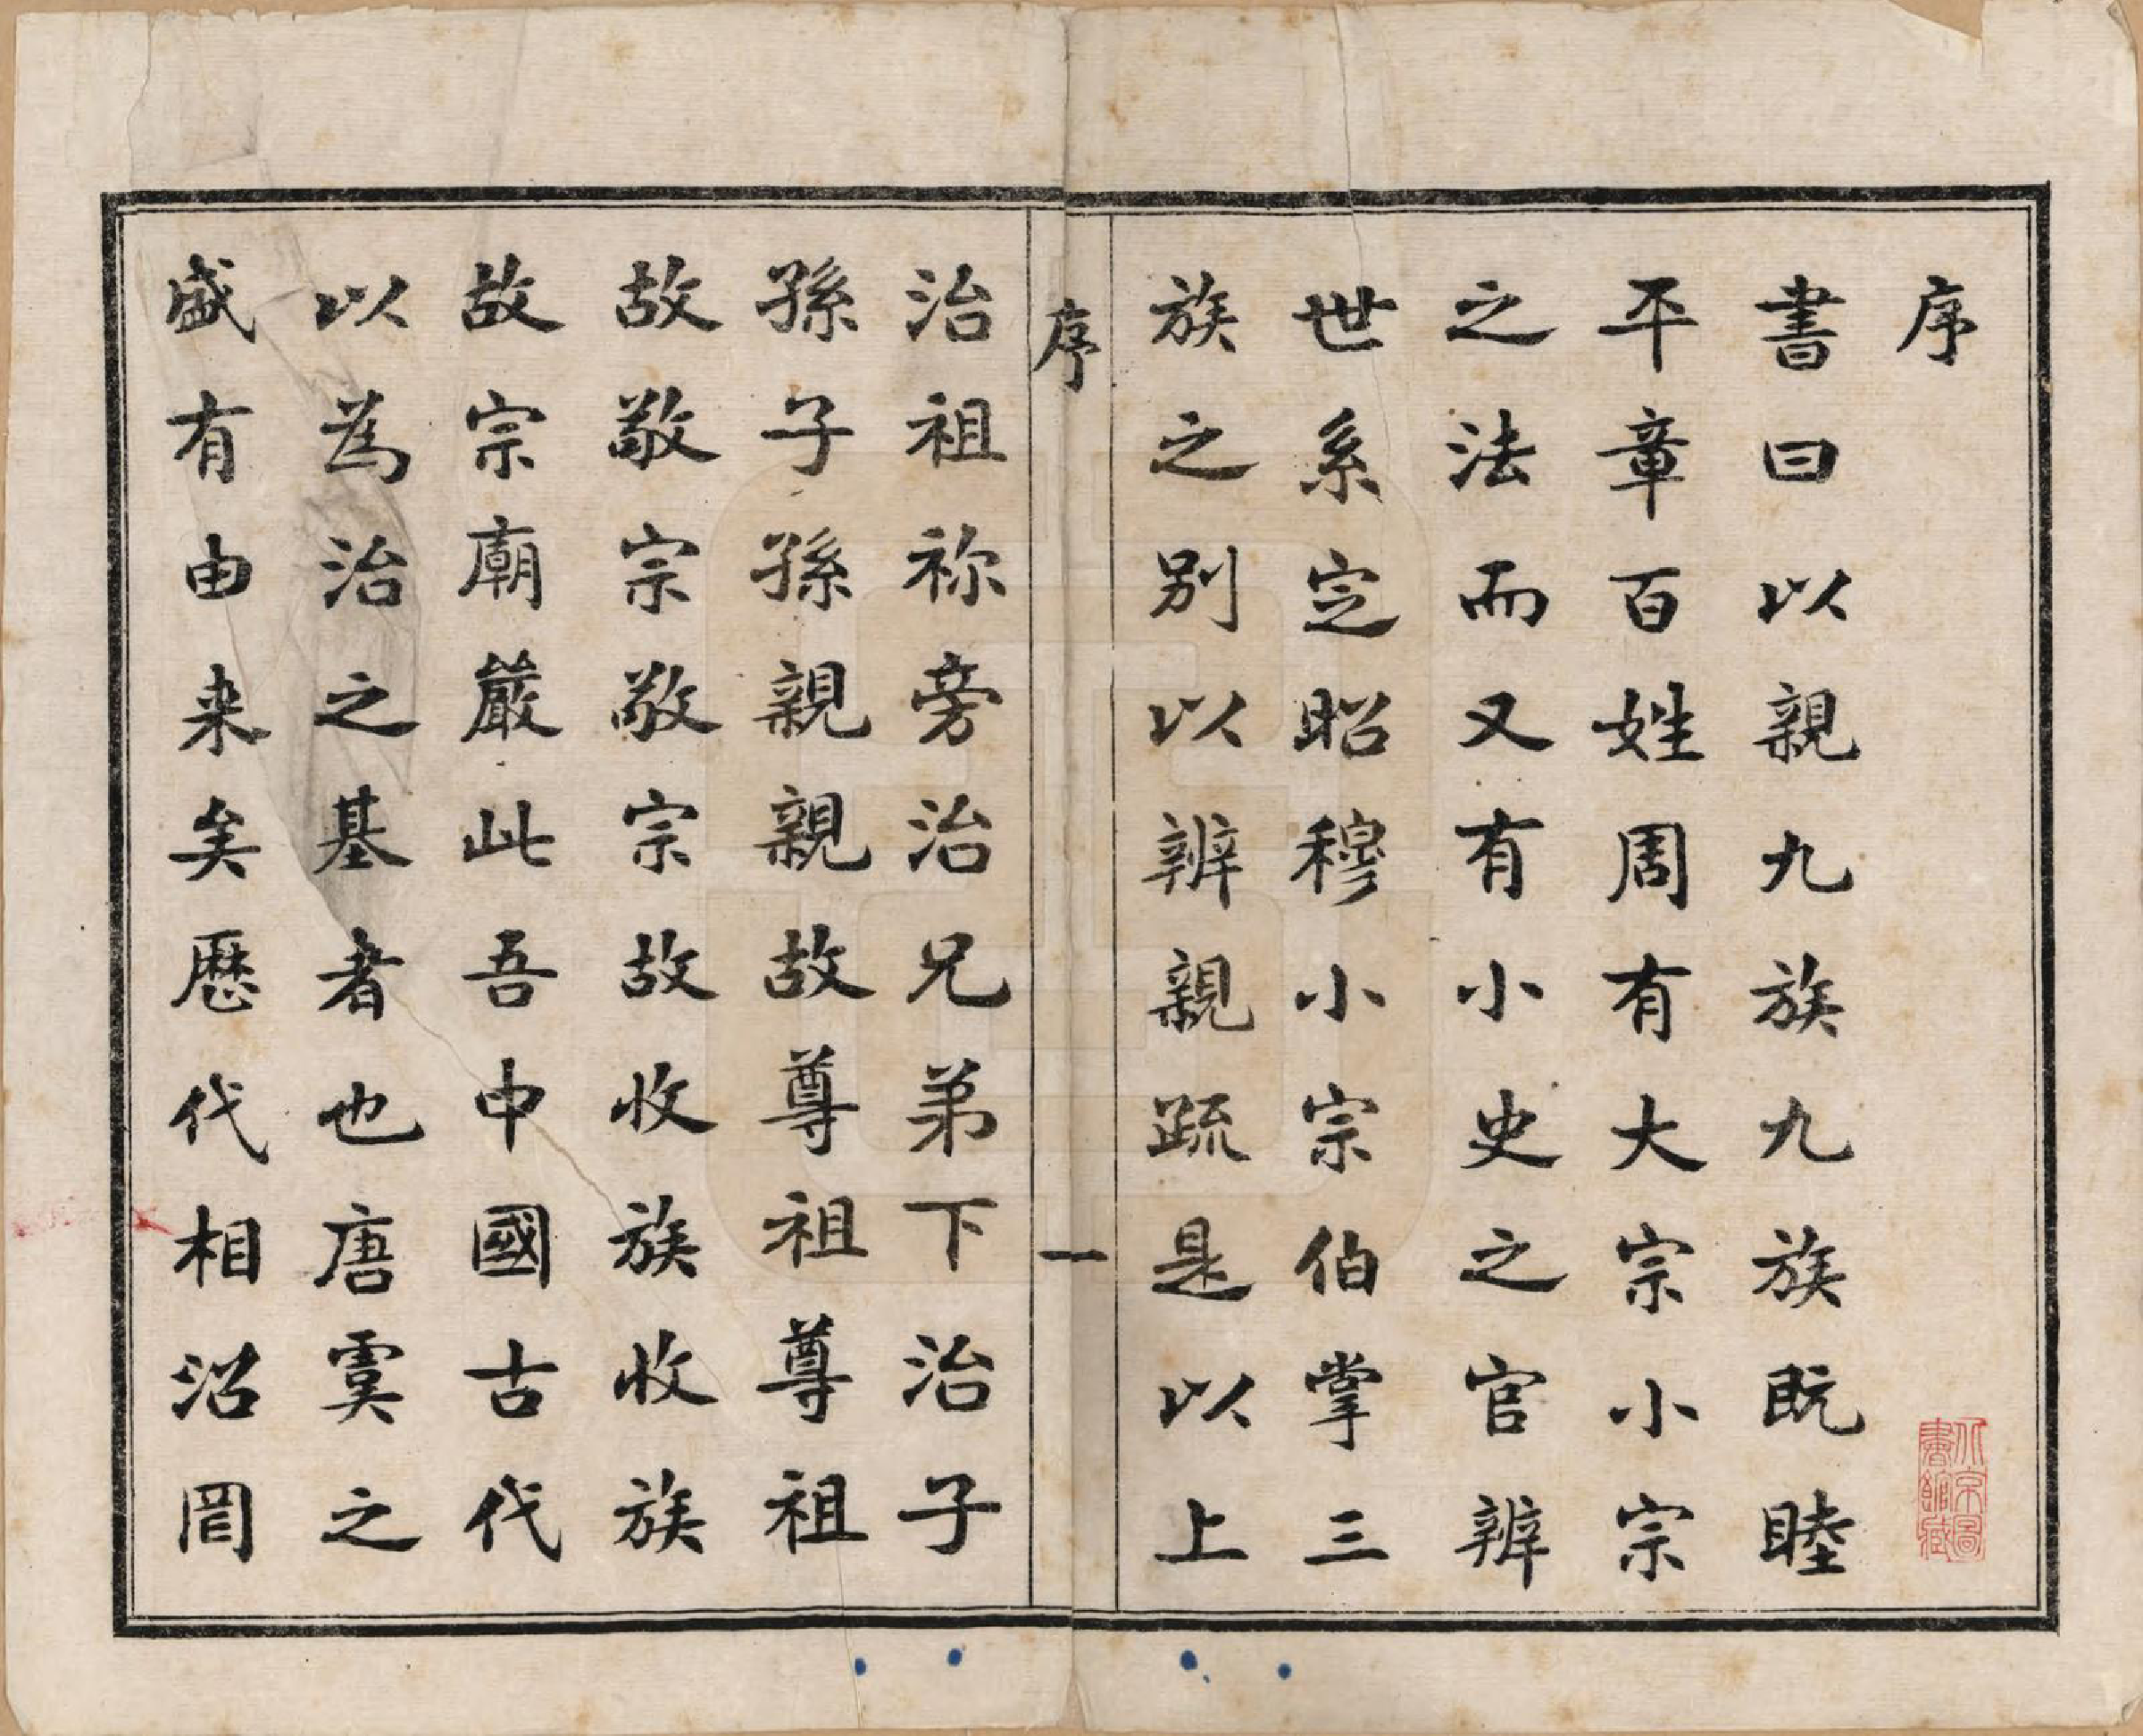 序
書曰以親九族九族既睦
平章百姓周有大宗小宗
之法而又有小史之官辨
世系定昭穆小宗伯掌三
族之別以辨親疏是以上
序
一
治祖祢旁治兄弟下治子
孫子孫親親故尊祖尊祖
故敬宗敬宗故收族收族
故宗廟嚴此吾中國古代
以為治之基者也唐虞之
盛有由来矣歷代相沿罔
北京圖
書館藏